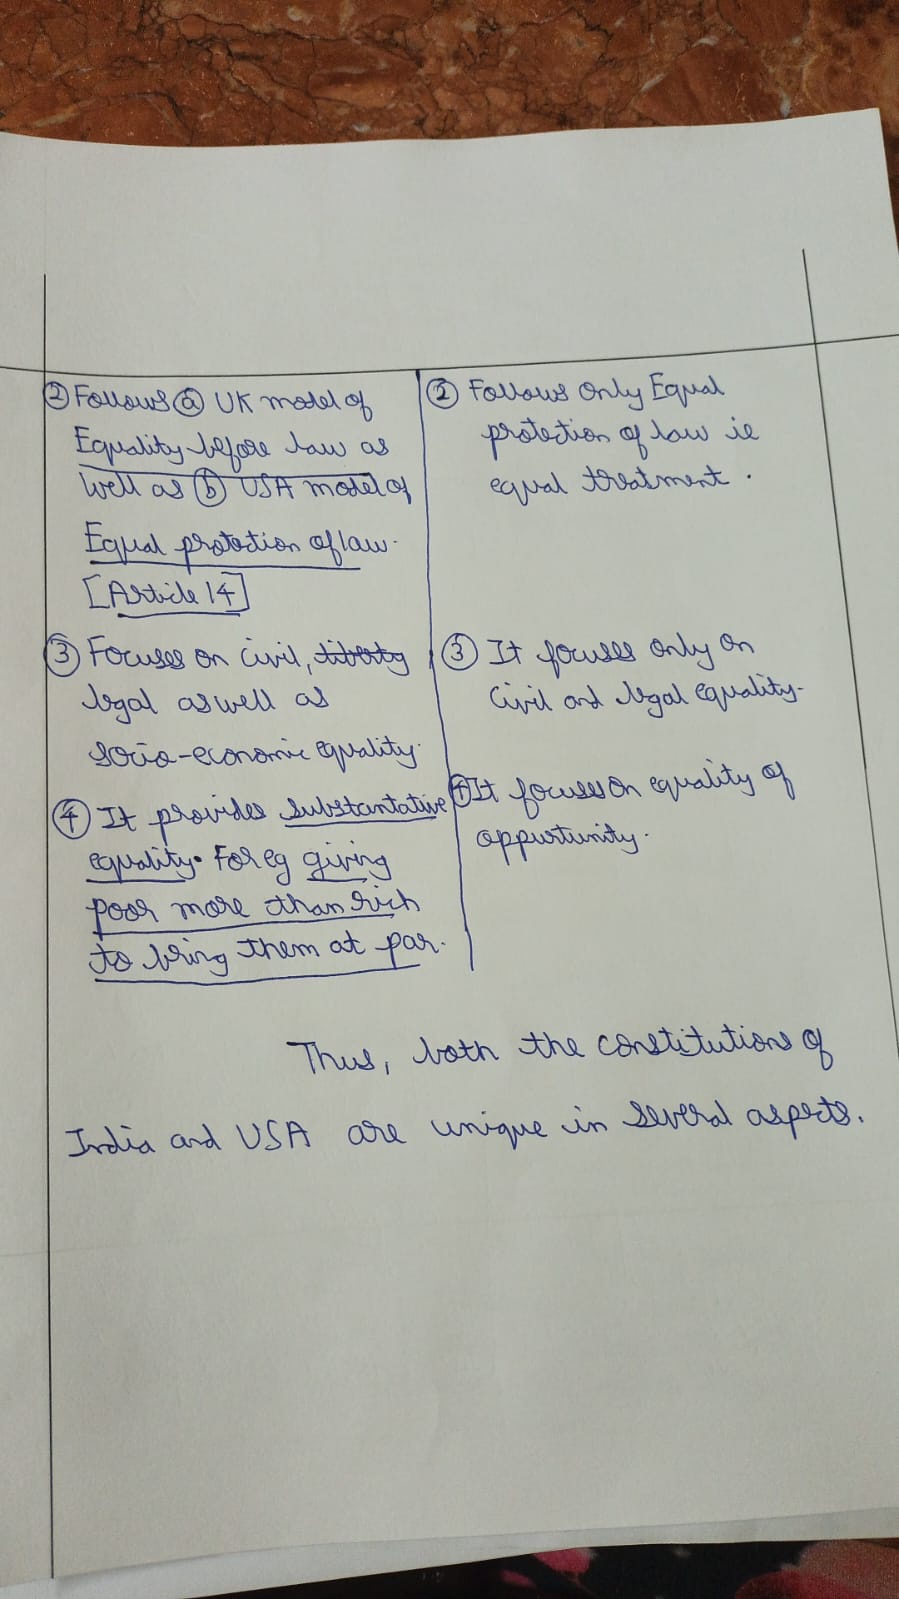 ② Follows ⓐ UK model of
Equality before law as
well as ⓑ USA model of
Equal protection of law.
[Article 14]
③ Focuses on civil, liberty
legal as well as
socio-economic equality.
④ It provides substantative
equality. For eg giving
poor more than rich
to bring them at par.
② Follows Only Equal
protection of law ie
equal treatment.
③ It focuses only on
Civil and legal equality.
④ It focuses on equality of
oppurtunity.
Thus, both the constitutions of
India and USA are unique in several aspects.